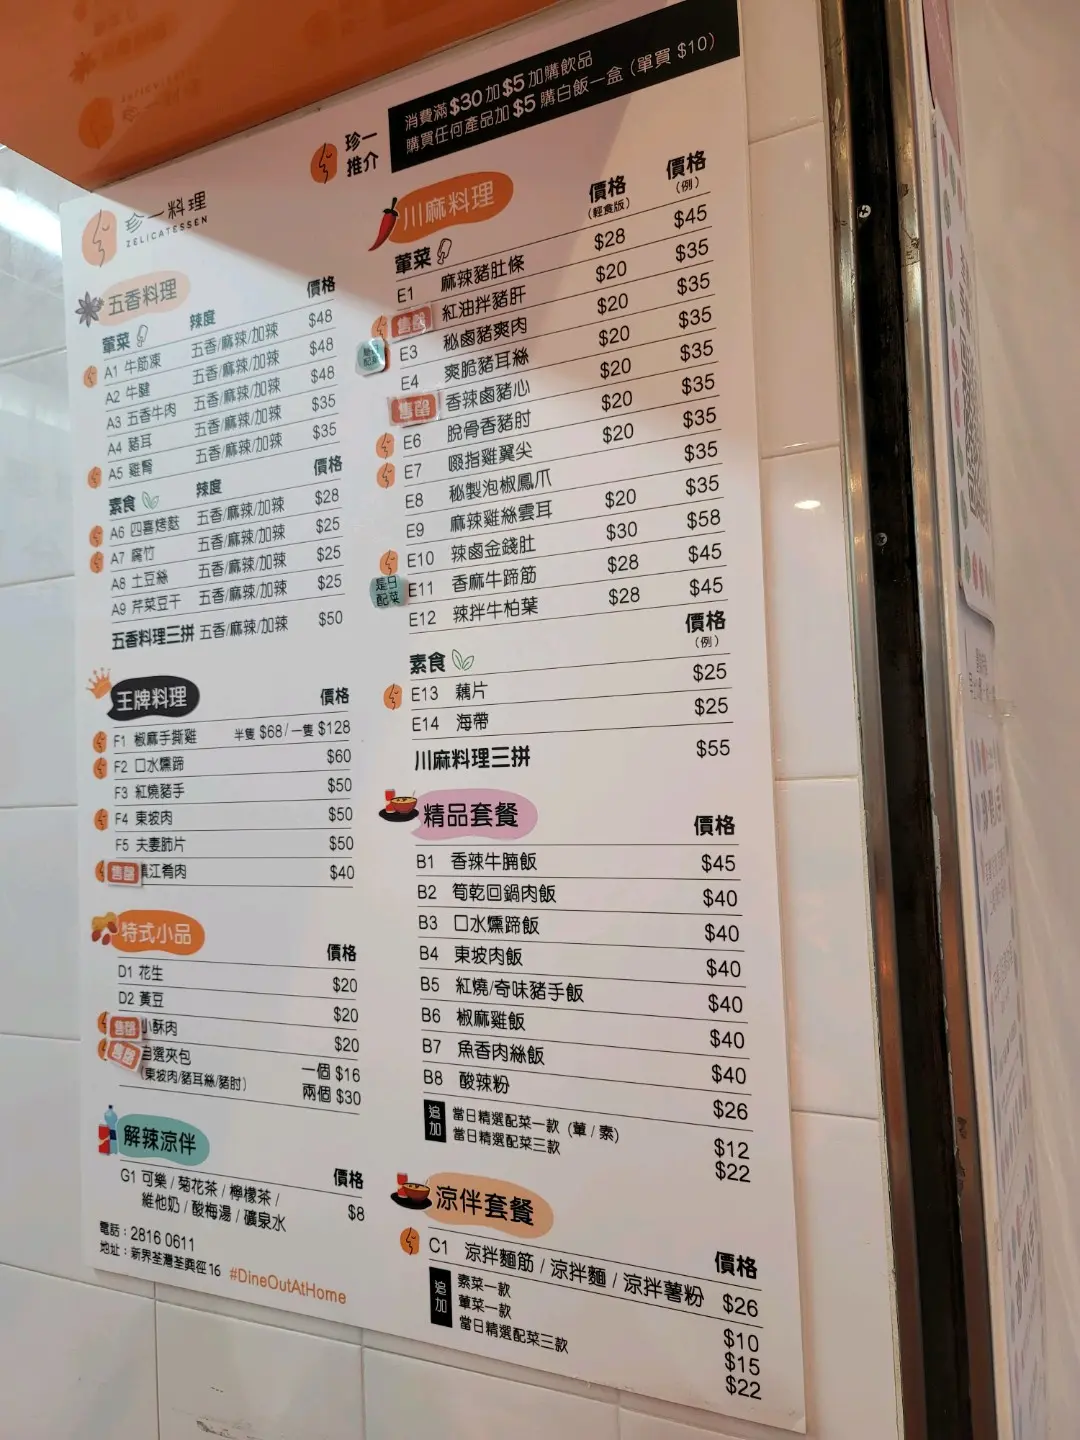 消費滿$30加$5加購飲品
購買任何產品加$5購白飯一盒（單買 $10）
珍一
推介
珍一料理
ZELICATESSEN
五香料理
葷菜 辣度 價格
A1 牛筋凍 五香/麻辣/加辣 $48
A2 牛腱 五香/麻辣/加辣 $48
A3 五香牛肉 五香/麻辣/加辣 $48
A4 豬耳 五香/麻辣/加辣 $35
A5 雞腎 五香/麻辣/加辣 $35
素食 辣度 價格
A6 四喜烤麩 五香/麻辣/加辣 $28
A7 腐竹 五香/麻辣/加辣 $25
A8 土豆絲 五香/麻辣/加辣 $25
A9 芹菜豆干 五香/麻辣/加辣 $25
五香料理三拼 五香/麻辣/加辣 $50
王牌料理
價格
F1 椒麻手撕雞 半隻 $68/一隻 $128
F2 口水燻蹄 $60
F3 紅燒豬手 $50
F4 東坡肉 $50
F5 夫妻肺片 $50
售罄 鎮江肴肉 $40
特式小品
價格
D1 花生 $20
D2 黃豆 $20
售罄 小酥肉 $20
售罄 自選夾包 一個 $16
（東坡肉/豬耳絲/豬肘） 兩個 $30
解辣涼伴
價格
G1 可樂 / 菊花茶 / 檸檬茶 /
維他奶 / 酸梅湯 / 礦泉水 $8
電話：2816 0611
地址：新界荃灣荃興徑16 #DineOutAtHome
川麻料理
價格 價格
（輕食版） （例）
葷菜
E1 麻辣豬肚條 $28 $45
售罄 紅油拌豬肝 $20 $35
E3 秘鹵豬爽肉 $20 $35
E4 爽脆豬耳絲 $20 $35
售罄 香辣鹵豬心 $20 $35
E6 脫骨香豬肘 $20 $35
E7 啜指雞翼尖 $20 $35
E8 秘製泡椒鳳爪 $35
E9 麻辣雞絲雲耳 $20 $35
E10 辣鹵金錢肚 $30 $58
是日
配菜
E11 香麻牛蹄筋 $28 $45
E12 辣拌牛柏葉 $28 $45
素食 價格
（例）
E13 藕片 $25
E14 海帶 $25
川麻料理三拼 $55
精品套餐
價格
B1 香辣牛腩飯 $45
B2 筍乾回鍋肉飯 $40
B3 口水燻蹄飯 $40
B4 東坡肉飯 $40
B5 紅燒/奇味豬手飯 $40
B6 椒麻雞飯 $40
B7 魚香肉絲飯 $40
B8 酸辣粉 $26
追加
當日精選配菜一款（葷 / 素） $12
當日精選配菜三款 $22
涼伴套餐
價格
C1 涼拌麵筋 / 涼拌麵 / 涼拌薯粉 $26
追加
素菜一款 $10
葷菜一款 $15
當日精選配菜三款 $22